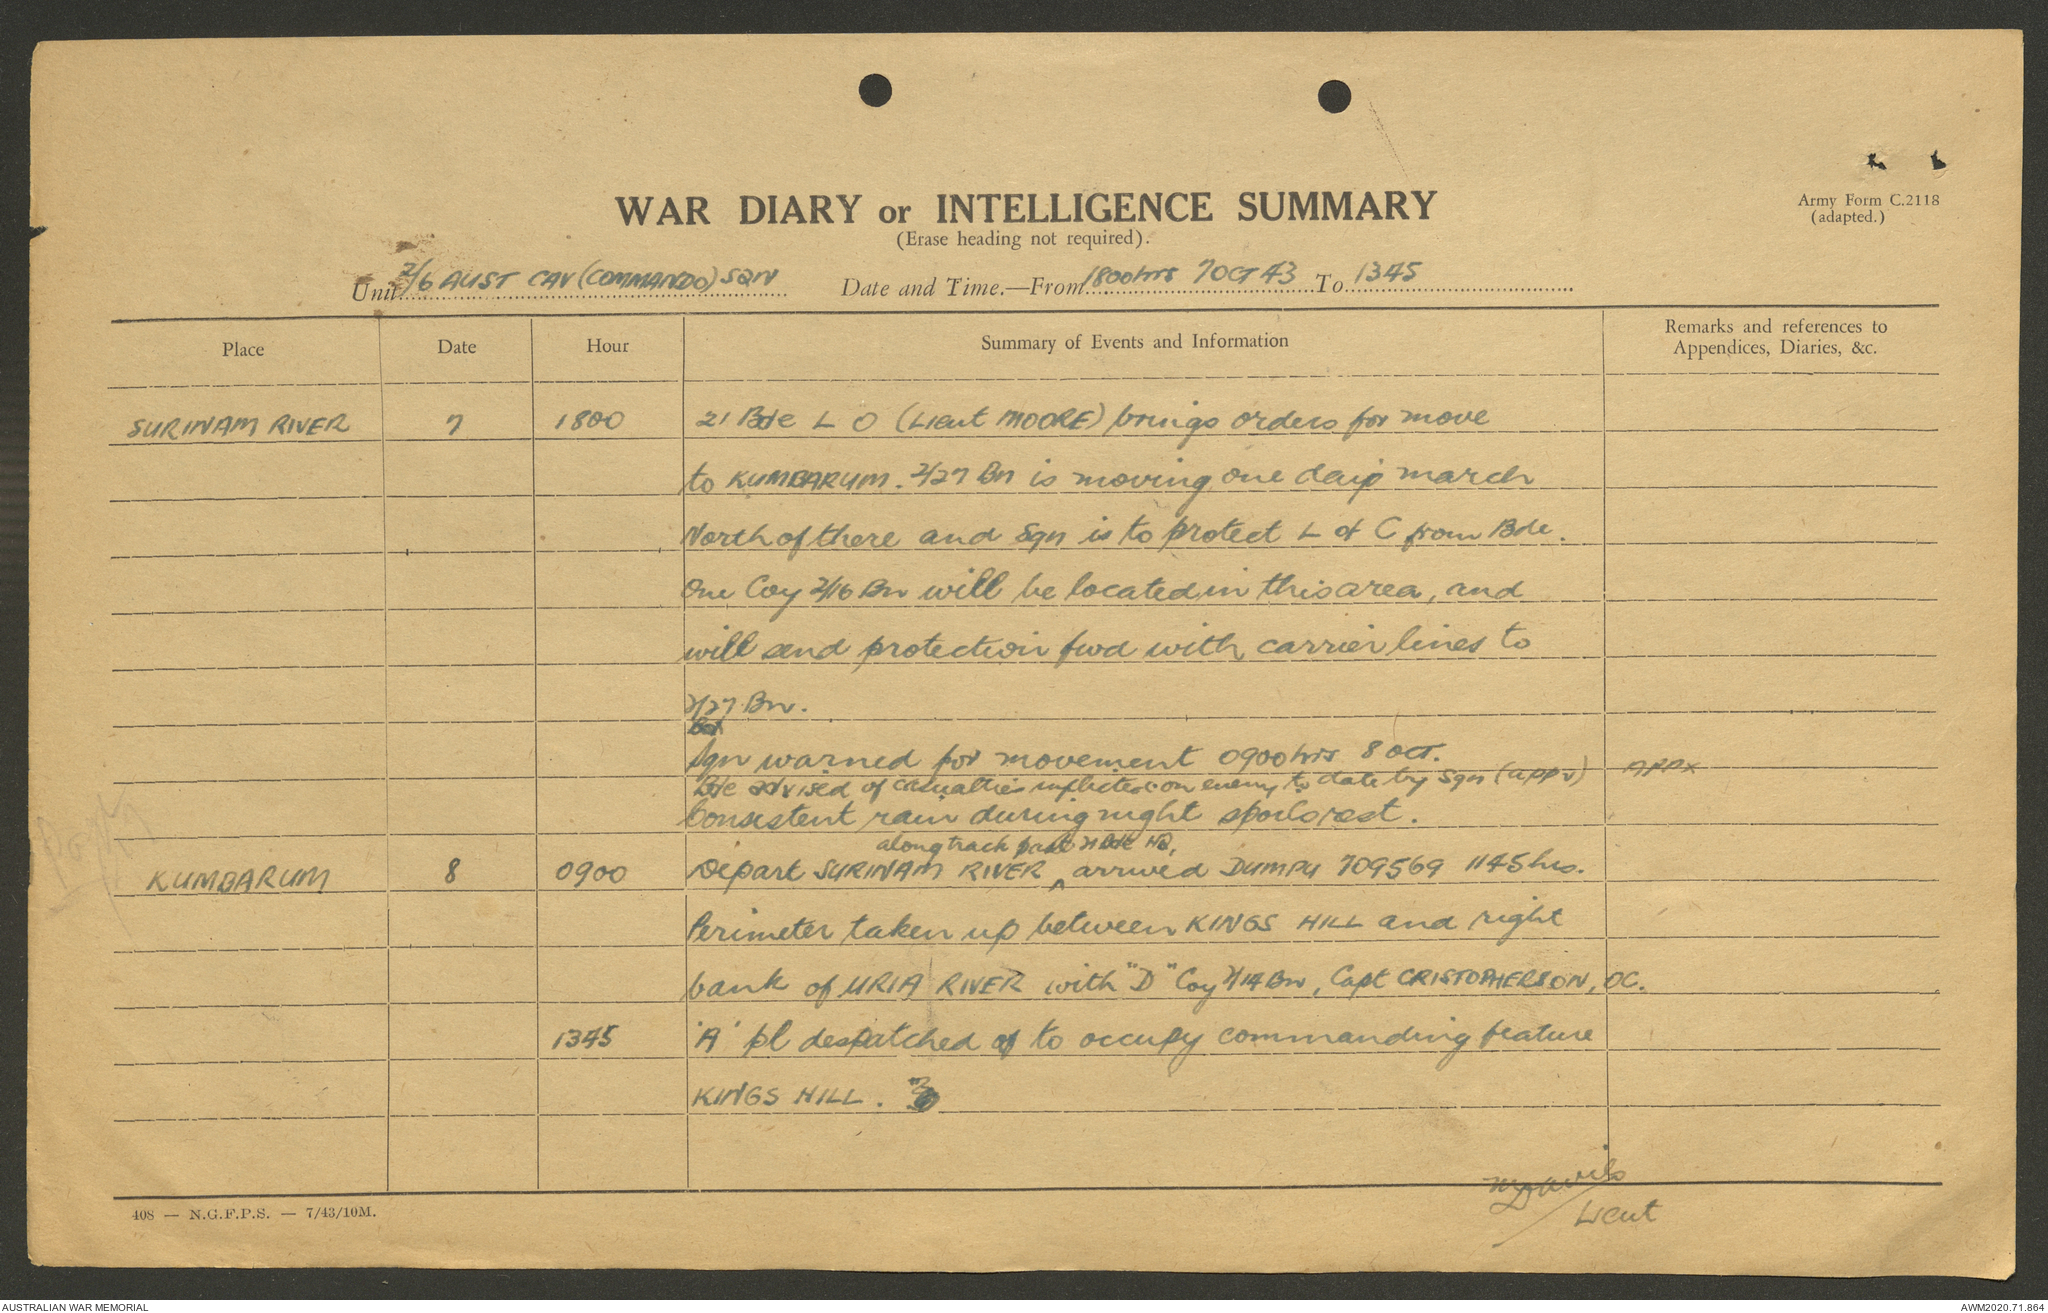 WAR DIARY or INTELLIGENCE SUMMARY
(Erase heading not required).
Army Form C.2118
(adapted.)
Unit 2/6 AUST CAV (COMMANDO) SQN Date and Time.—From 1800hrs 7 OCT 43 To 1345
Place Date Hour Summary of Events and Information Remarks and references to
Appendices, Diaries, &c.
SURINAM RIVER 7 1800 21 Bde L O (Lieut MOORE) brings orders for move
to KUMBARUM. 2/27 Bn is moving one days march
North of there and Sqn is to protect L of C from Bde.
One Coy 2/16 Bn will be located in this area, and
will send protection fwd with carrier lines to
2/27 Bn.
Sqn warned for movement 0900hrs 8 OCT.
Bde advised of casualties inflicted on enemy to date by Sqn (app v) APPX
Consistent rain during night spoils rest.
along track past 21 Bde HQ,
KUMBARUM 8 0900 Depart SURINAM RIVER ^ arrived DUMPU 709569 1145 hrs.
Perimeter taken up between KINGS HILL and right
bank of URIA RIVER with "D" Coy 2/14 Bn, Capt CRISTOPHERSON, OC.
1345 'A' pl despatched to occupy commanding feature
KINGS HILL.
Lieut
408 — N.G.F.P.S. — 7/43/10M.
AUSTRALIAN WAR MEMORIAL AWM2020.71.864